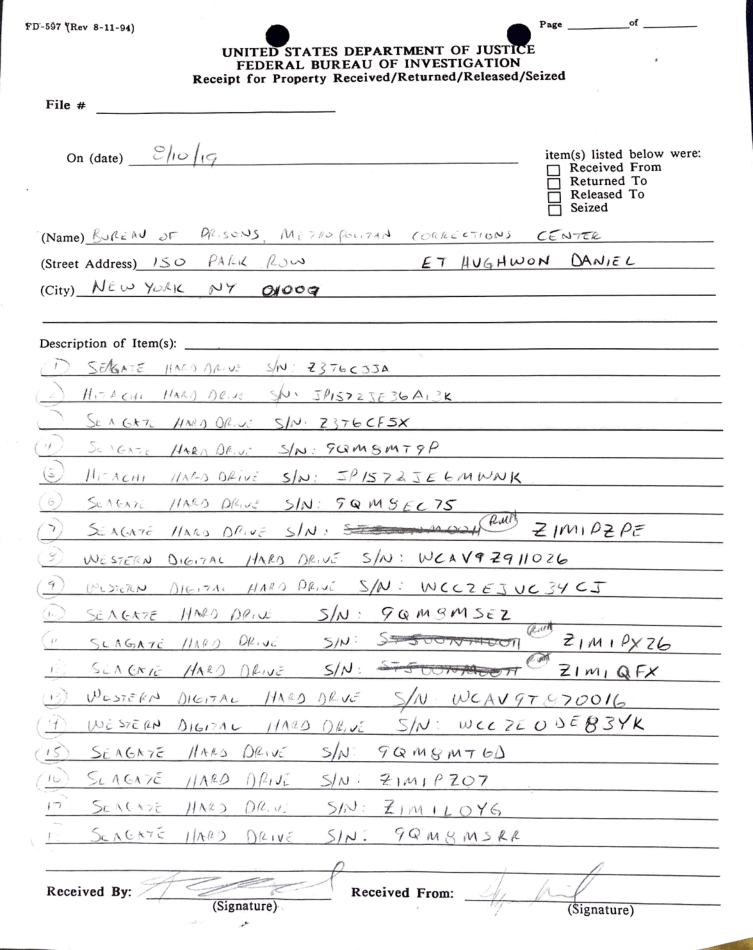 FD-597 (Rev 8-11-94)
Page ______ of ______
UNITED STATES DEPARTMENT OF JUSTICE
FEDERAL BUREAU OF INVESTIGATION
Receipt for Property Received/Returned/Released/Seized
File #
On (date) 8/10/19
item(s) listed below were:
Received From
Returned To
Released To
Seized
(Name) BUREAU OF PRISONS, METROPOLITAN CORRECTIONS CENTER
(Street Address) 150 PARK ROW ET HUGHWON DANIEL
(City) NEW YORK NY
Description of Item(s):
1 SEAGATE HARD DRIVE S/N: Z3T6CJJA
2 HITACHI HARD DRIVE S/N: JP1572JE36A13K
SEAGATE HARD DRIVE S/N: Z3T6CF5X
4 SEAGATE HARD DRIVE S/N: 9QM8MT9P
5 HITACHI HARD DRIVE S/N: JP1572JE6MWNK
6 SEAGATE HARD DRIVE S/N: 9QM8EC75
7 SEAGATE HARD DRIVE S/N: Z1M1PZPE
8 WESTERN DIGITAL HARD DRIVE S/N: WCAV9Z911026
9 WESTERN DIGITAL HARD DRIVE S/N: WCC2EJUC34CJ
10 SEAGATE HARD DRIVE S/N: 9QM8MSEZ
11 SEAGATE HARD DRIVE S/N: Z1M1PX26
12 SEAGATE HARD DRIVE S/N: Z1M1QFX
13 WESTERN DIGITAL HARD DRIVE S/N: WCAV9T870016
14 WESTERN DIGITAL HARD DRIVE S/N: WCC2EUDE83YK
15 SEAGATE HARD DRIVE S/N: 9QM8MT6D
16 SEAGATE HARD DRIVE S/N: Z1M1PZ07
17 SEAGATE HARD DRIVE S/N: Z1M1LOYG
SEAGATE HARD DRIVE S/N: 9QM8MSRR
Received By:
Received From:
(Signature)
(Signature)